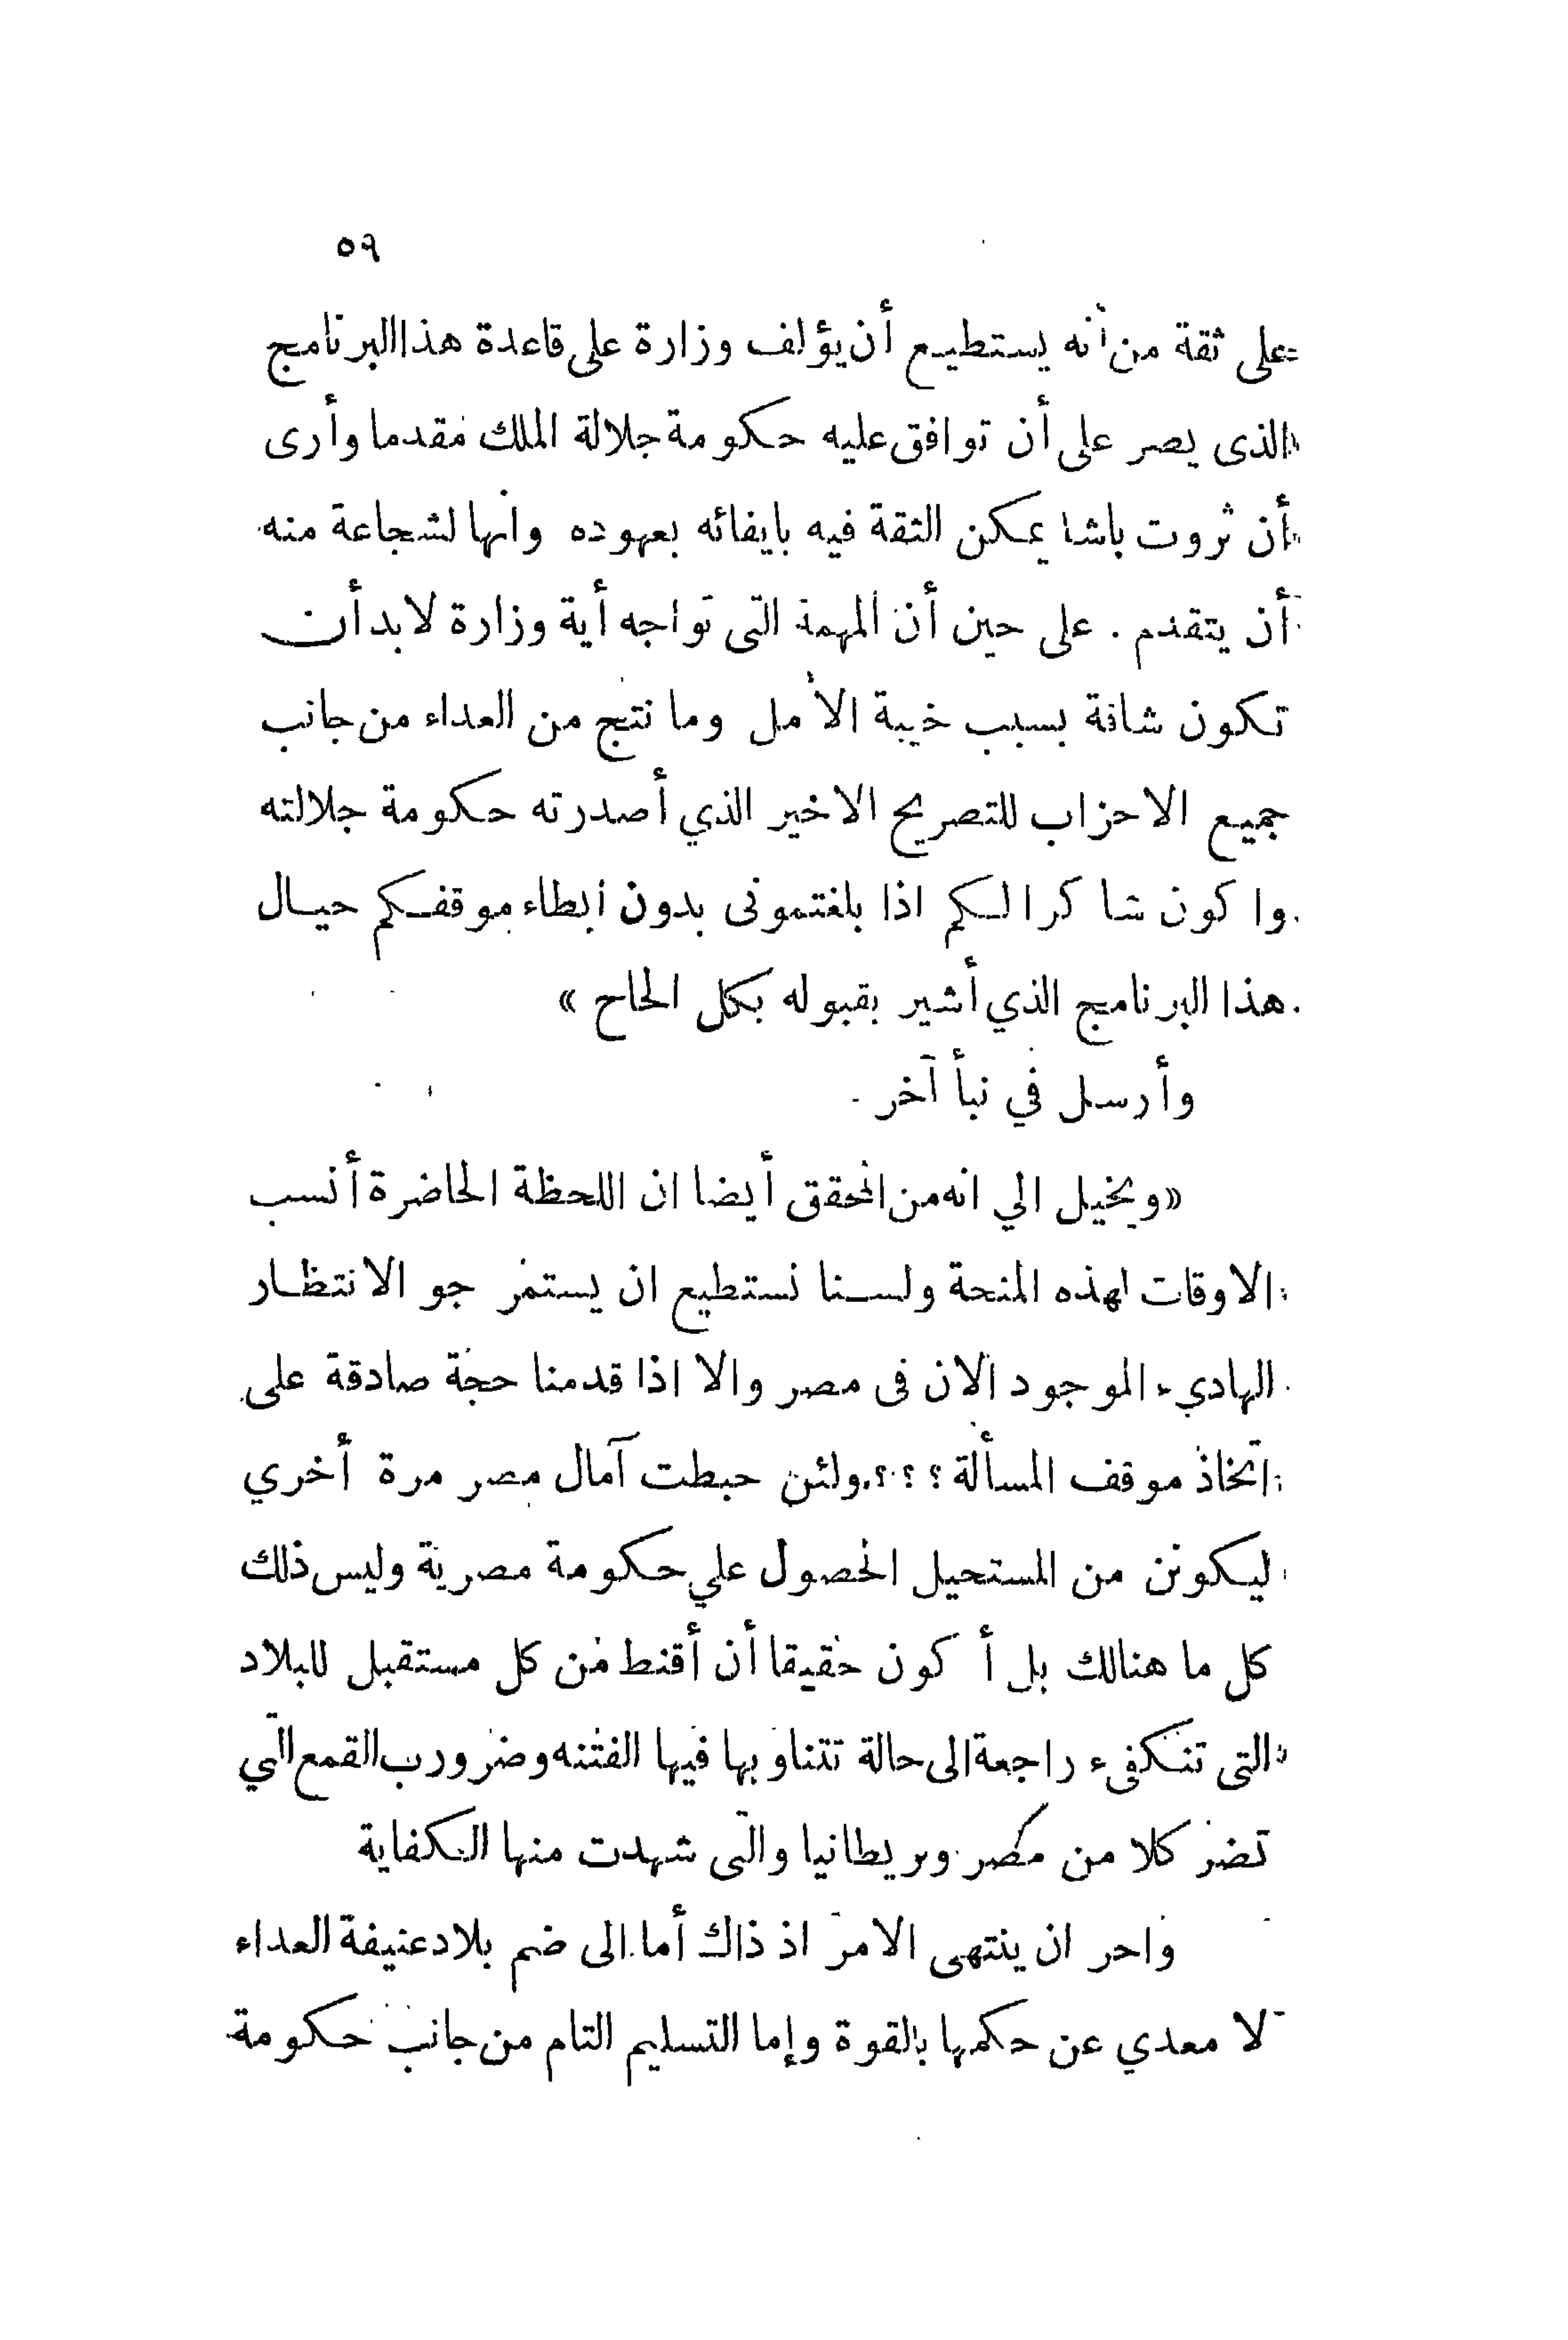 ٥٩
على ثقة من أنه يستطيع أن يؤلف وزارة على قاعدة هذا البرنامج
الذى يصر على أن توافق عليه حكومة جلالة الملك مقدما وأرى
أن ثروت باشا يمكن الثقة فيه بايفائه بعهوده وانها لشجاعة منه
أن يتقدم . على حين أن المهمة التى تواجه أية وزارة لابد أن
تكون شاقة بسبب خيبة الأمل وما نتج من العداء من جانب
جميع الاحزاب للتصريح الاخير الذي أصدرته حكومة جلالته
وا كون شا كرا لكم اذا بلغتمونى بدون ابطاء موقفكم حيال
هذا البرنامج الذي أشير بقبوله بكل الحاح »
وأرسل في نبأ آخر .
«ويخيل الي انه من المحقق أيضا ان اللحظة الحاضرة أنسب
الاوقات لهذه المنحة ولسنا نستطيع ان يستمر جو الانتظار
الهاديء الموجود الان فى مصر والا اذا قدمنا حجة صادقة على
اتخاذ موقف المسألة ؟ ؟ ؟ ولئن حبطت آمال مصر مرة أخري
ليكونن من المستحيل الحصول علي حكومة مصرية وليس ذلك
كل ما هنالك بل أ كون حقيقا أن أقنط من كل مستقبل للبلاد
التى تنكفىء راجعة الى حالة تتناوبها فيها الفتنه وضر ورب القمع التي
تضر كلا من مصر وبريطانيا والتى شهدت منها الكفاية
واحر ان ينتهى الامر اذ ذاك أما الى ضم بلاد عنيفة العداء
لا معدي عن حكمها بالقوة وإما التسليم التام من جانب حكومة